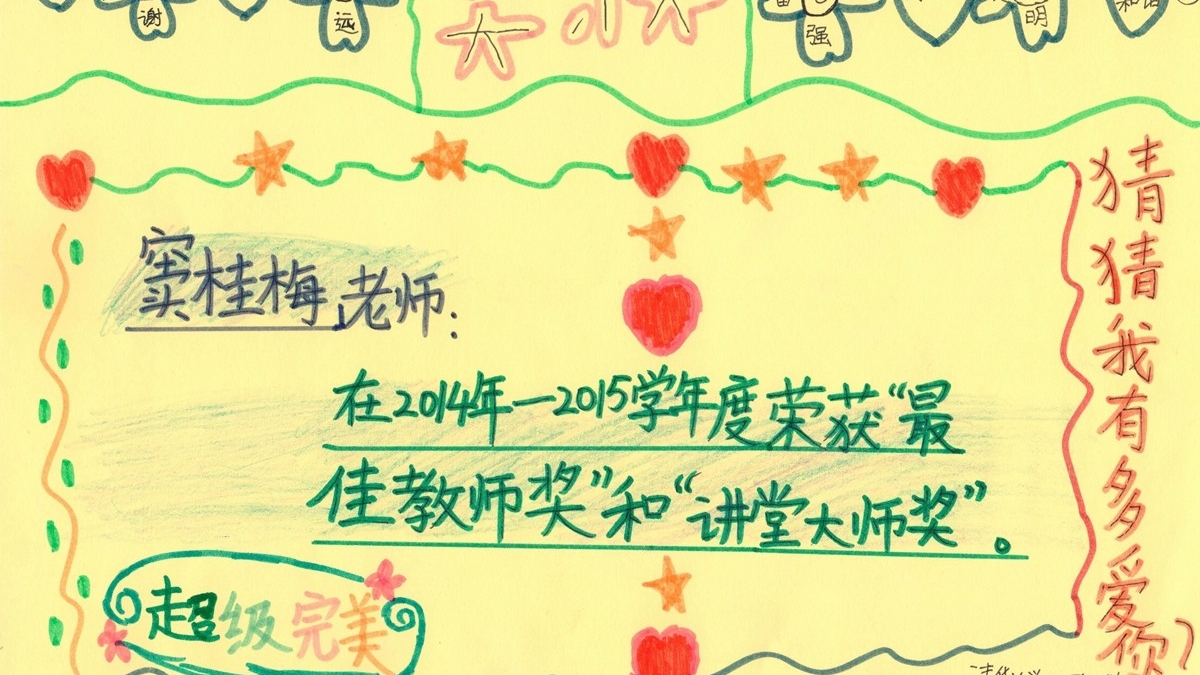 谢
远
大
强
明
和谐
窦桂梅老师:
在2014年—2015学年度荣获“最
佳教师奖”和“讲堂大师奖”。
超级完美
猜猜我有多爱你?